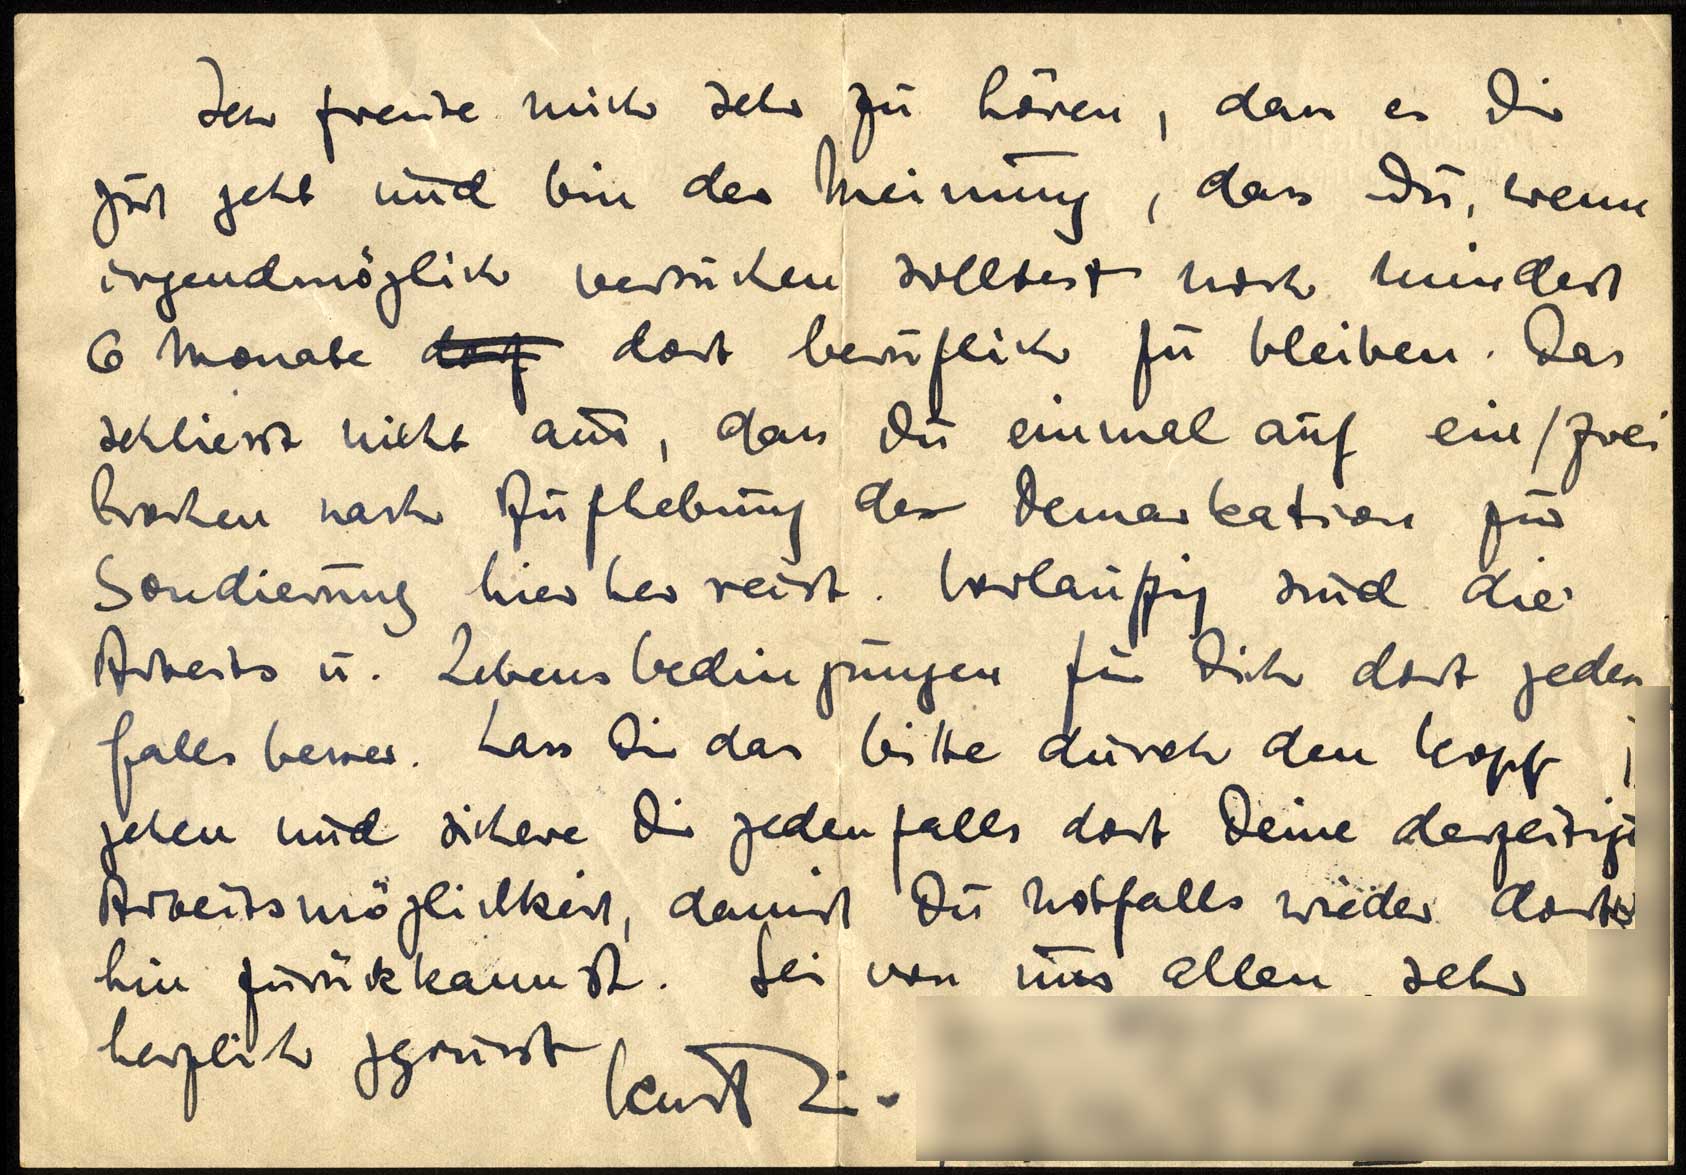 Ich freue mich sehr zu hören, dass es Dir
gut geht und bin der Meinung, dass Du, wenn
irgendmöglich versuchen solltest noch mindest
6 Monate dort beruflich zu bleiben. Das
schliesst nicht aus, dass Du einmal auf ein/zwei
Wochen nach Aufhebung der Demarkation zur
Sondierung hierher reist. Vorläufig sind die
Arbeits u. Lebensbedingungen für Dich dort jeden
falls besser. Lass Dir das bitte durch den Kopf
gehen und sichere Dir jedenfalls dort Deine derzeitige
Arbeitsmöglichkeit, damit Du notfalls wieder dort
hin zurückkannst. Sei von uns allen sehr
herzlich gegrüsst
Kurt